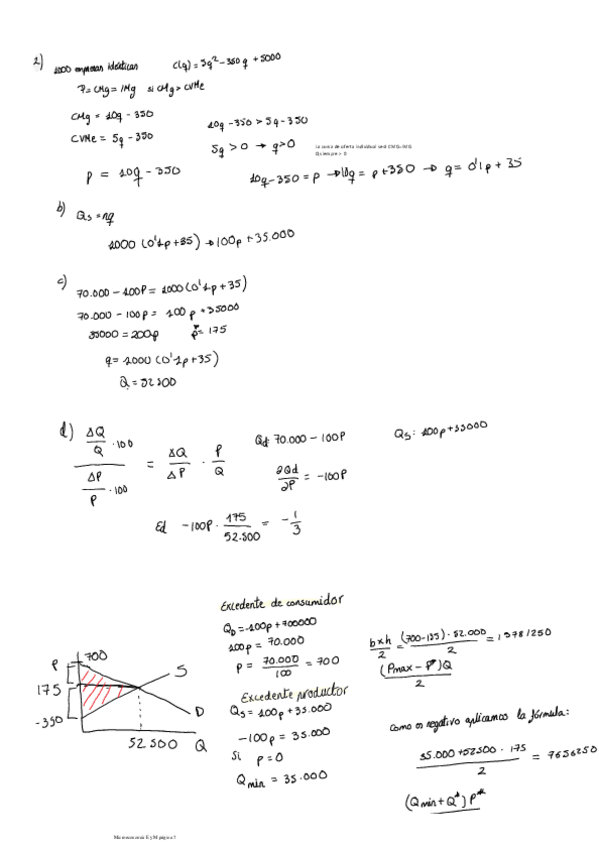 2) 1000 empresas idénticas C(q) = 5q² - 350q + 5000
P = CMg = IMg si CMg > CVMe
CMg = 10q - 350
CVMe = 5q - 350
10q - 350 > 5q - 350
5q > 0 → q > 0
La curva de oferta individual será CMG=IMG
P = 10q - 350
10q - 350 = p → 10q = p + 350 → q = 0'1p + 35
b) Qs = nq
1000 (0'1p + 35) → 100p + 35.000
c) 70.000 - 100P = 1000 (0'1p + 35)
70.000 - 100p = 100p + 35000
35000 = 200p p* = 175
q = 1000 (0'1p + 35)
Q = 52500
d) ΔQ/Q · 100 / ΔP/P · 100 = ΔQ/ΔP · P/Q
Qd: 70.000 - 100P
Qs: 100p + 35000
∂Qd/∂P = -100P
Ed -100P · 175/52.500 = -1/3
Excedente de consumidor
QD = -100p + 70000
100p = 70.000
p = 70.000/100 = 700
b x h/2 = (700-175) · 52.000/2 = 13781250
(Pmax - P*)Q/2
P 700
175
-350
S
D
52500 Q
Excedente productor
Qs = 100p + 35.000
-100p = 35.000
Si p = 0
Qmin = 35.000
Como es negativo aplicamos la fórmula:
35.000 + 52500 · 175/2 = 7656250
(Qmin + Q*) P*